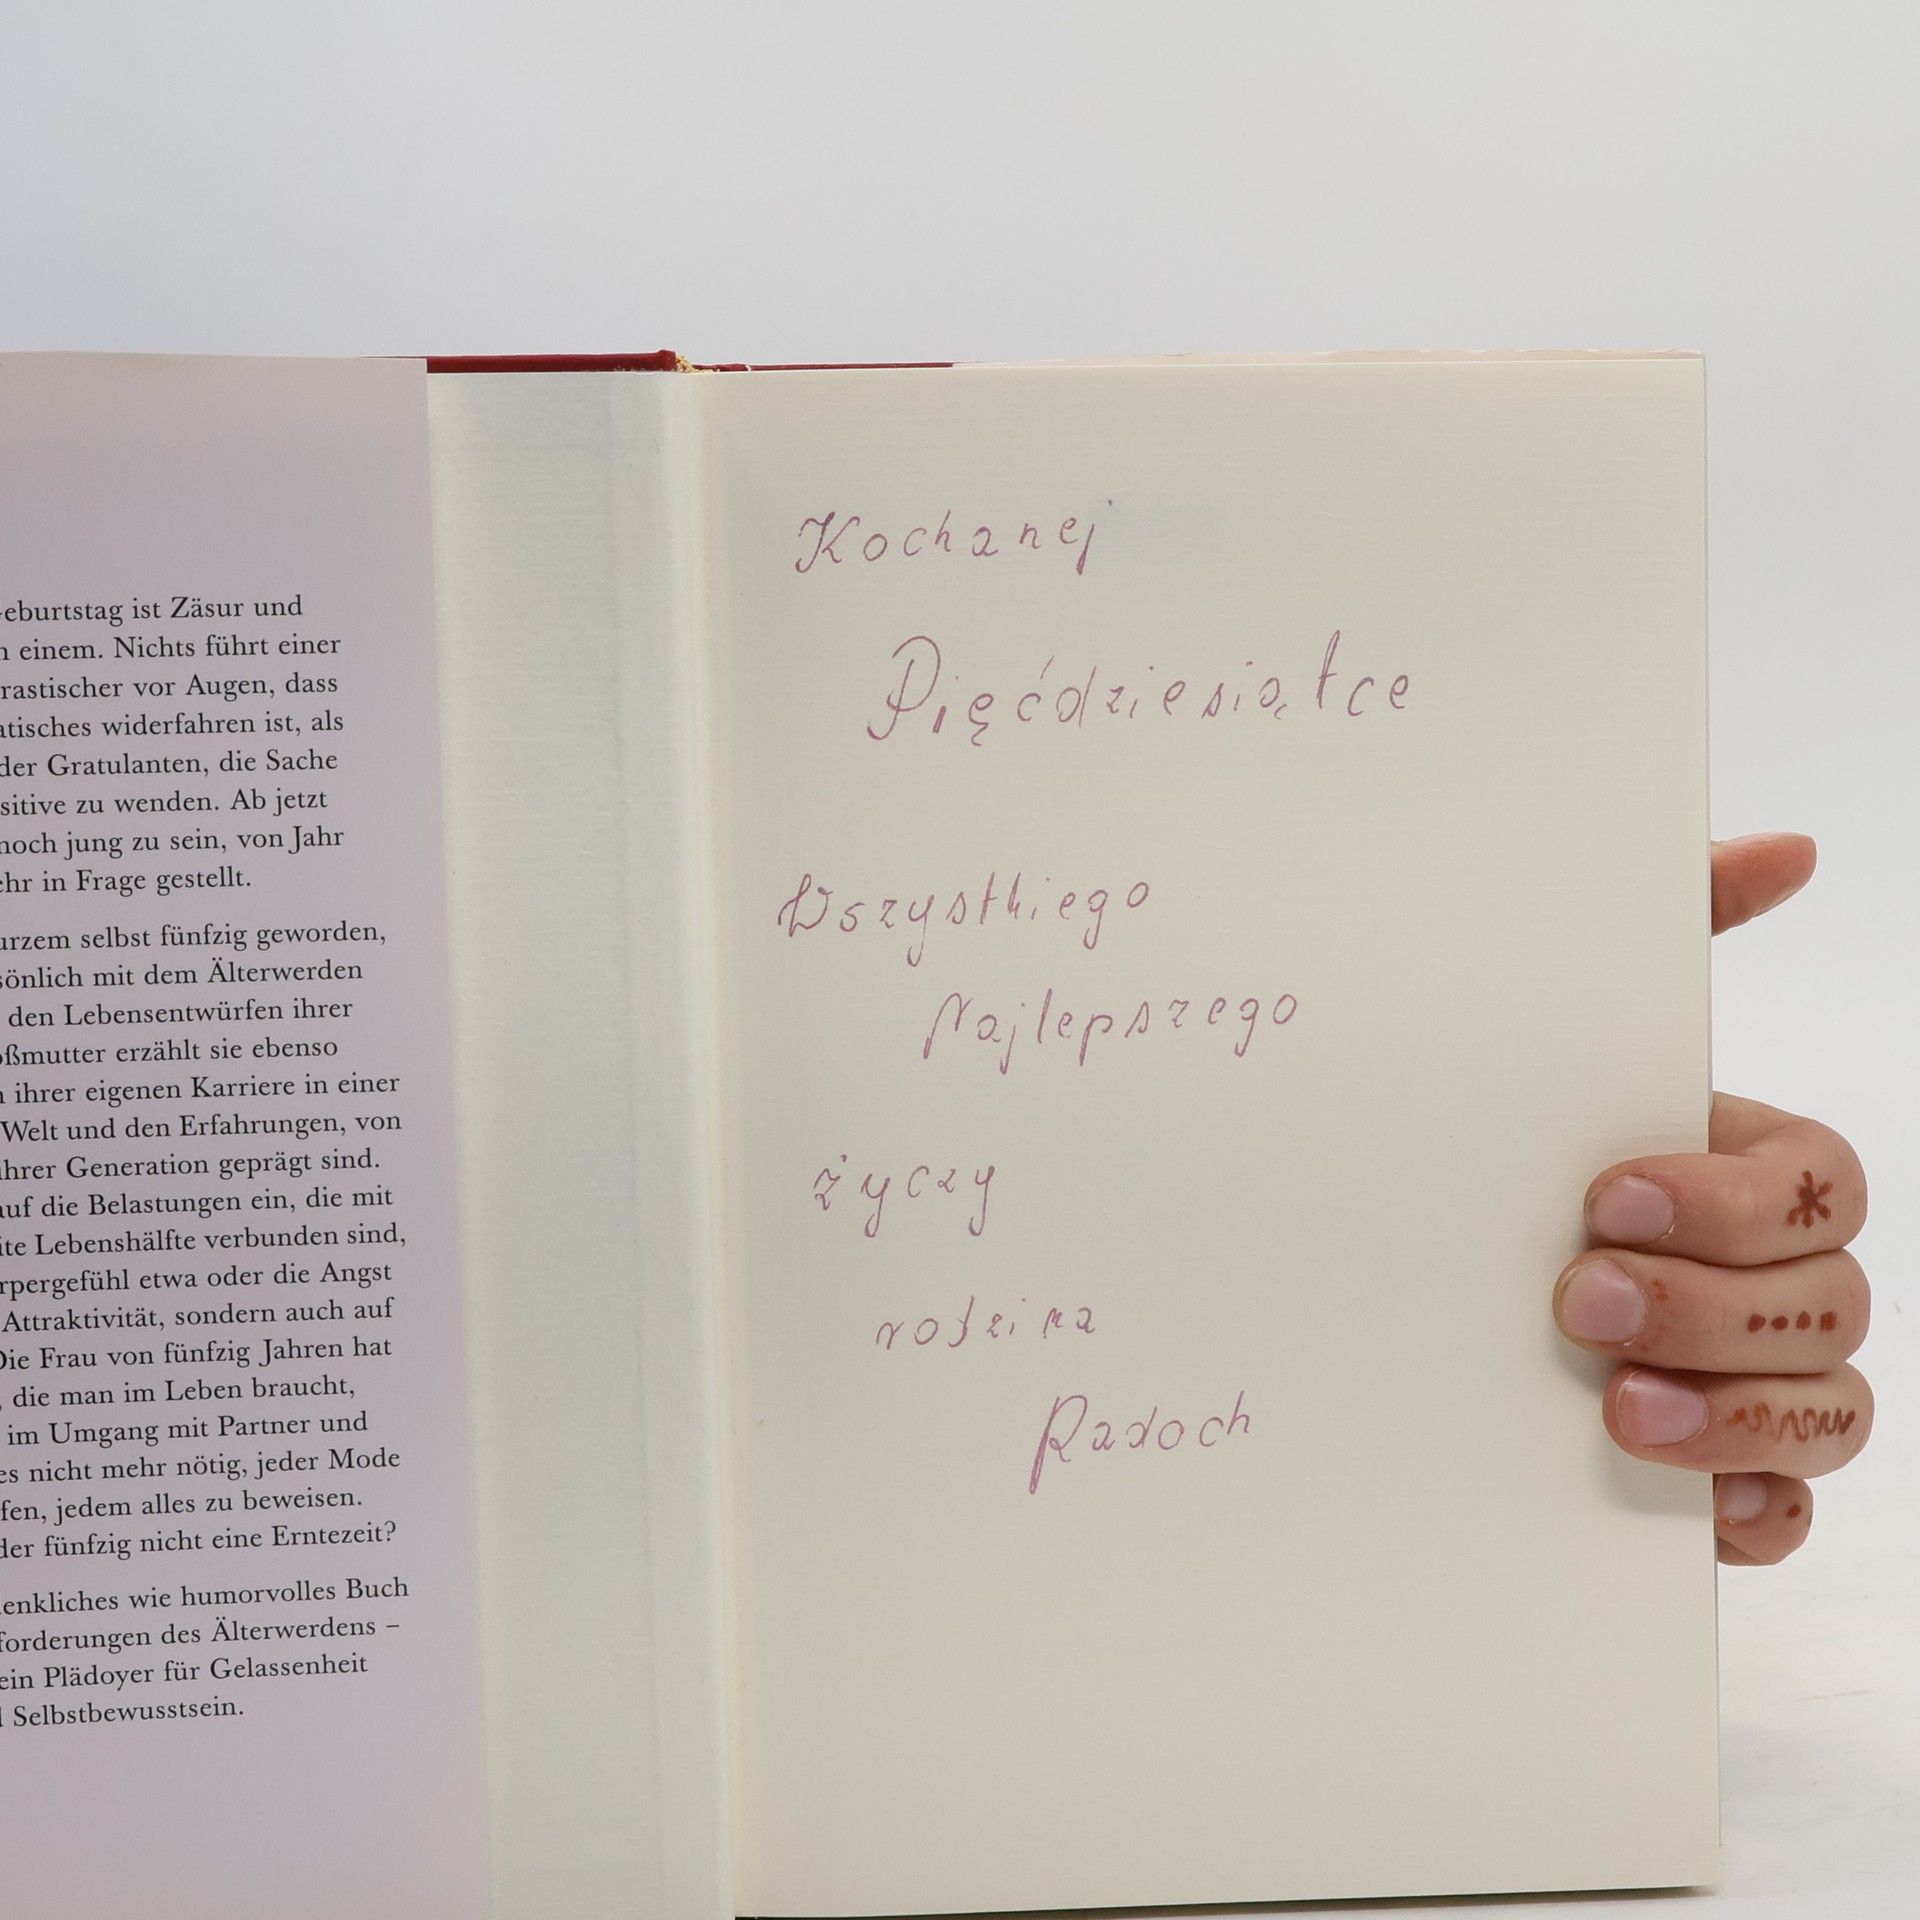 eburtstag ist Zäsur und
n einem. Nichts führt einer
rastischer vor Augen, dass
atisches widerfahren ist, als
der Gratulanten, die Sache
sitive zu wenden. Ab jetzt
noch jung zu sein, von Jahr
ehr in Frage gestellt.
urzem selbst fünfzig geworden,
sönlich mit dem Älterwerden
den Lebensentwürfen ihrer
oßmutter erzählt sie ebenso
n ihrer eigenen Karriere in einer
Welt und den Erfahrungen, von
ihrer Generation geprägt sind.
auf die Belastungen ein, die mit
ite Lebenshälfte verbunden sind,
rpergefühl etwa oder die Angst
Attraktivität, sondern auch auf
Die Frau von fünfzig Jahren hat
, die man im Leben braucht,
im Umgang mit Partner und
es nicht mehr nötig, jeder Mode
fen, jedem alles zu beweisen.
der fünfzig nicht eine Erntezeit?
enkliches wie humorvolles Buch
forderungen des Älterwerdens –
ein Plädoyer für Gelassenheit
d Selbstbewusstsein.
Kochanej
Pięćdziesiątce
Wszystkiego
Najlepszego
życzy
rodzina
Radoch